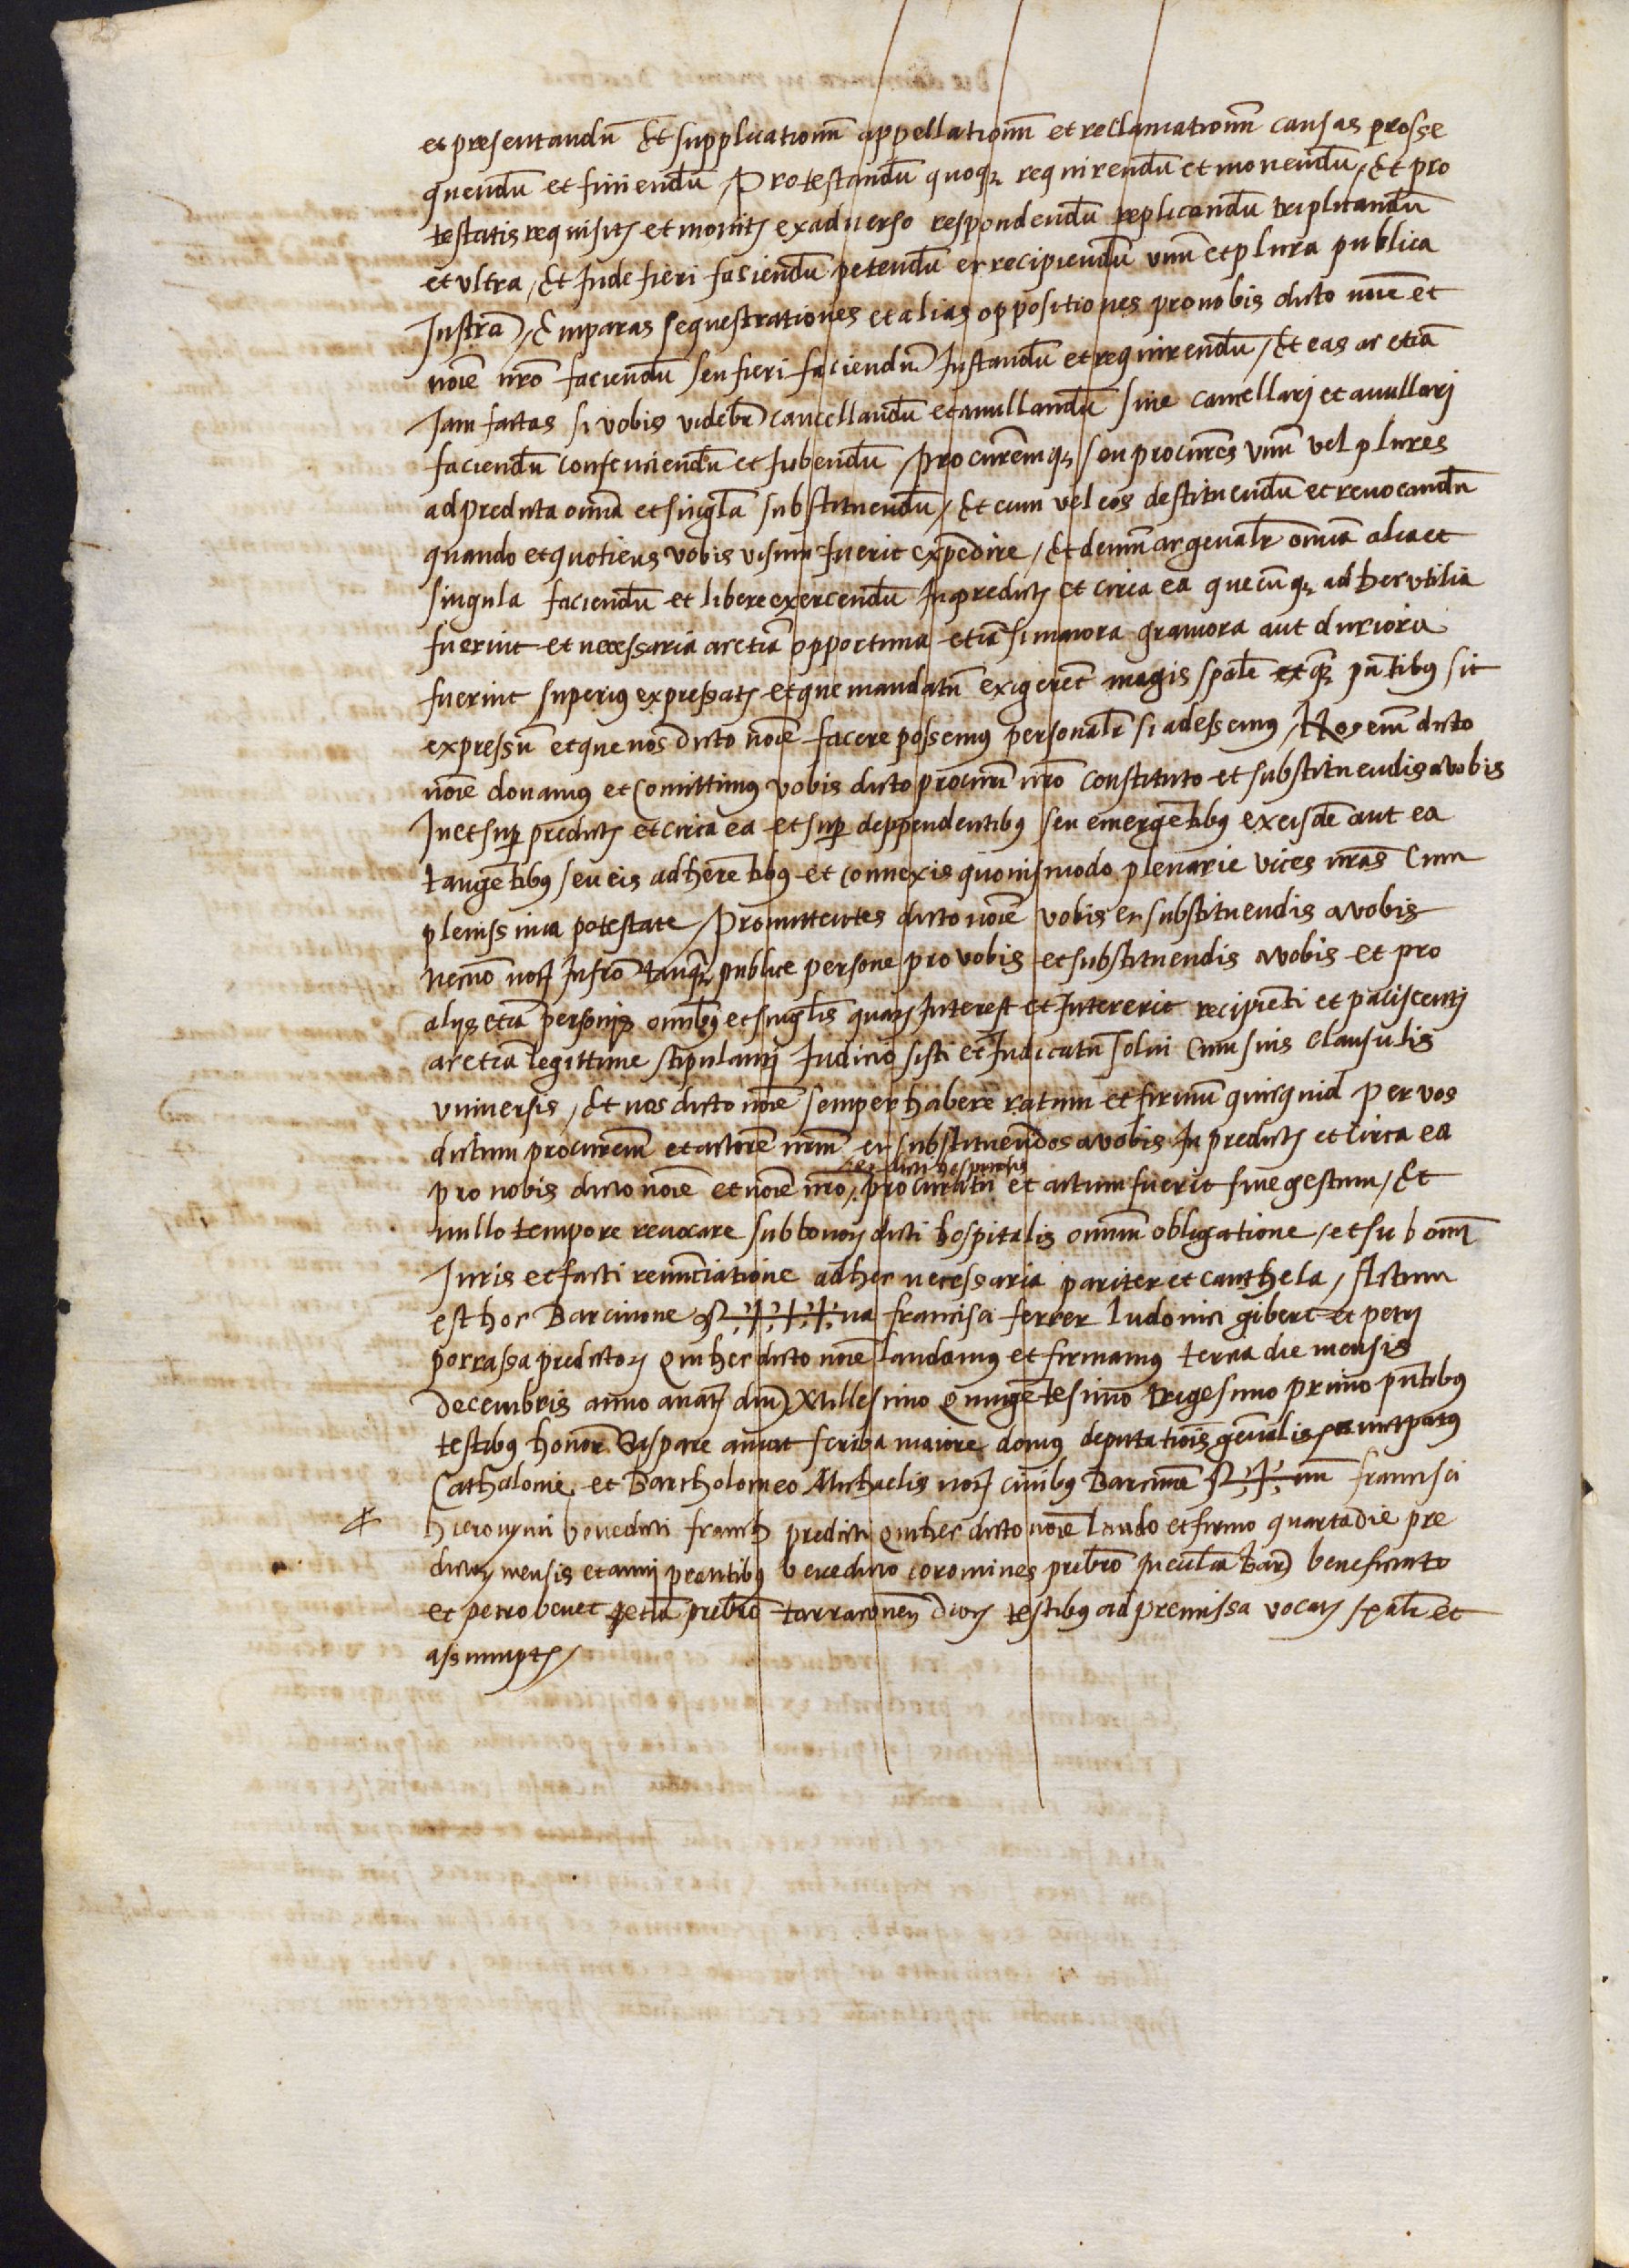 et presentandũ Et supplicationũ appellationũ et reclamationũ causas prosse
quendũ et finiendũ / Protestandũ quoqȝ requirendũ et monendũ / Et pro
testatis requisitȝ et monitȝ exaduerso respondendũ replicandũ triplicandũ
et vltra / Et Inde fieri faciendũ petendũ et recipiendũ vnũ et plura publica
Instrã / Emparas sequestrationes et alias oppositiones pro nobis dicto noĩe et
noĩe nrõ faciendũ seu fieri faciendũ Instandũ et requirendũ / Et eas ac etiã
Iam factas si vobis videbr̃ cancellandũ et anullandũ siue cancellarj et anullarj
faciendũ consenciendũ et Iubendũ / procurem̃qȝ seu procures̃ vnũ vel plures
ad predicta omñia et singl̃a substituendũ / Et eum vel eos destituendũ et reuocandũ
quando et quotiens vobis visum fuerit expedire / Et demũ ac genãlr omñia alia et
singula faciendũ et libere exercendũ In predictȝ et circa ea quecũqȝ ad hec vtilia
fuerint et necessaria ac etiã opportuna etiã si maiora grauiora aut duriora
fuerint superius expressatȝ et que mandatũ exigerẽt magis spãle et qȝ pñtibus sit
expressũ et que nos dicto noĩe facere possemus personalr̃ si adessemus / Nos enĩ dicto
noĩe donamus et comittimus vobis dicto procurĩ nrõ constituto et substituendis a vobis
In et suꝑ predictȝ et circa ea et suꝑ deppendentibus seu emergẽtibus ex eisdẽ aut ea
tangẽtibus seu eis adherẽtibus et connexis quouismodo plenarie vices nrãs Cum
plenissima potestate / Promittentes dicto noĩe vobis et substituendis a vobis
necnõ notȝ Infrõ tanqȝ publice persone pro vobis et substituendis a vobis et pro
alijs etiã personis om̃ibus et singl̃is quarȝ Interest et Intererit recipiẽti et paciscentj
ac etiã legittime stipulantj Iudicio sisti et Iudicatũ solui Cum suis clausulis
vniuersis / Et nos dicto noĩe semper habere ratum et firmũ quicquid per vos
dictum procurem̃ et actorẽ nrũm et substituendos a vobis In predictȝ et circa ea
et dicti hospitalis
pro nobis dicto noĩe et noĩe nrõ procuratũ et actum fuerit siue gestum / Et
nullo tempore reuocare sub bonorȝ dicti hospitalis omniũ obligatione / et sub omĩ
Iuris et facti renũciatione ad hec necessaria pariter et cauthela / Actum
est hoc Barcinone S++++na francisci ferrer ludouici gibert et petrj
porrassa predictorȝ Qui hec dicto noĩe laudamus et firmamus tercia die mensis
Decembris anno a natȝ dnĩ Millesimo Quingẽtesimo trigesimo primo pñtibus
testibus honorȝ Gaspare amat scriba maiore domus deputationis genẽralis principatus
Cathalonie et Bartholomeo Michaelis notȝ ciuibus Barcinoñ S++num francisci
hieronymi benedicti franch predicti Qui hec dicto noĩe laudo et firmo quarta die pre
dictorȝ mensis et anni presentibus benedicto coromines presbr̃o In ecclĩa Barȝ beneficiato
et petro benet etiã presbr̃o tarraconenȝ dioȝ testibus ad premissa vocatȝ spãlr et
assumptȝ